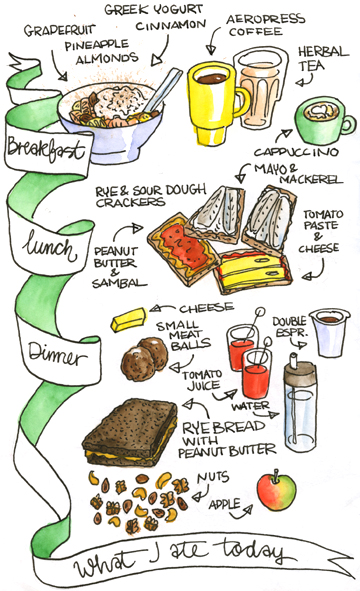 GREEK YOGURT
CINNAMON
GRAPEFRUIT
PINEAPPLE
ALMONDS
AEROPRESS
COFFEE
HERBAL
TEA
Breakfast
CAPPUCCINO
MAYO &
MACKEREL
RYE & SOUR DOUGH
CRACKERS
TOMATO
PASTE
&
CHEESE
lunch
PEANUT
BUTTER
&
SAMBAL
CHEESE
SMALL
MEAT
BALLS
DOUBLE
ESPR.
Dinner
TOMATO
JUICE
WATER
RYE BREAD
WITH
PEANUT BUTTER
NUTS
APPLE
What I ate today